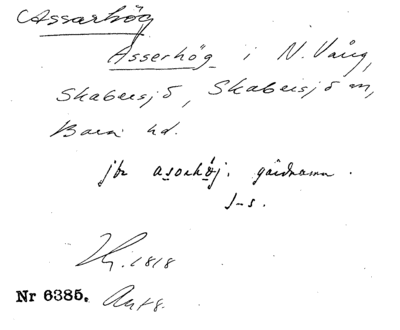 Assarhög
Asserhög i N. Vång,
Skabersjö, Skabersjö sn,
Bara hd.
jfr asorhöj. gårdnamn.
J-s.
1818
Nr 6385.